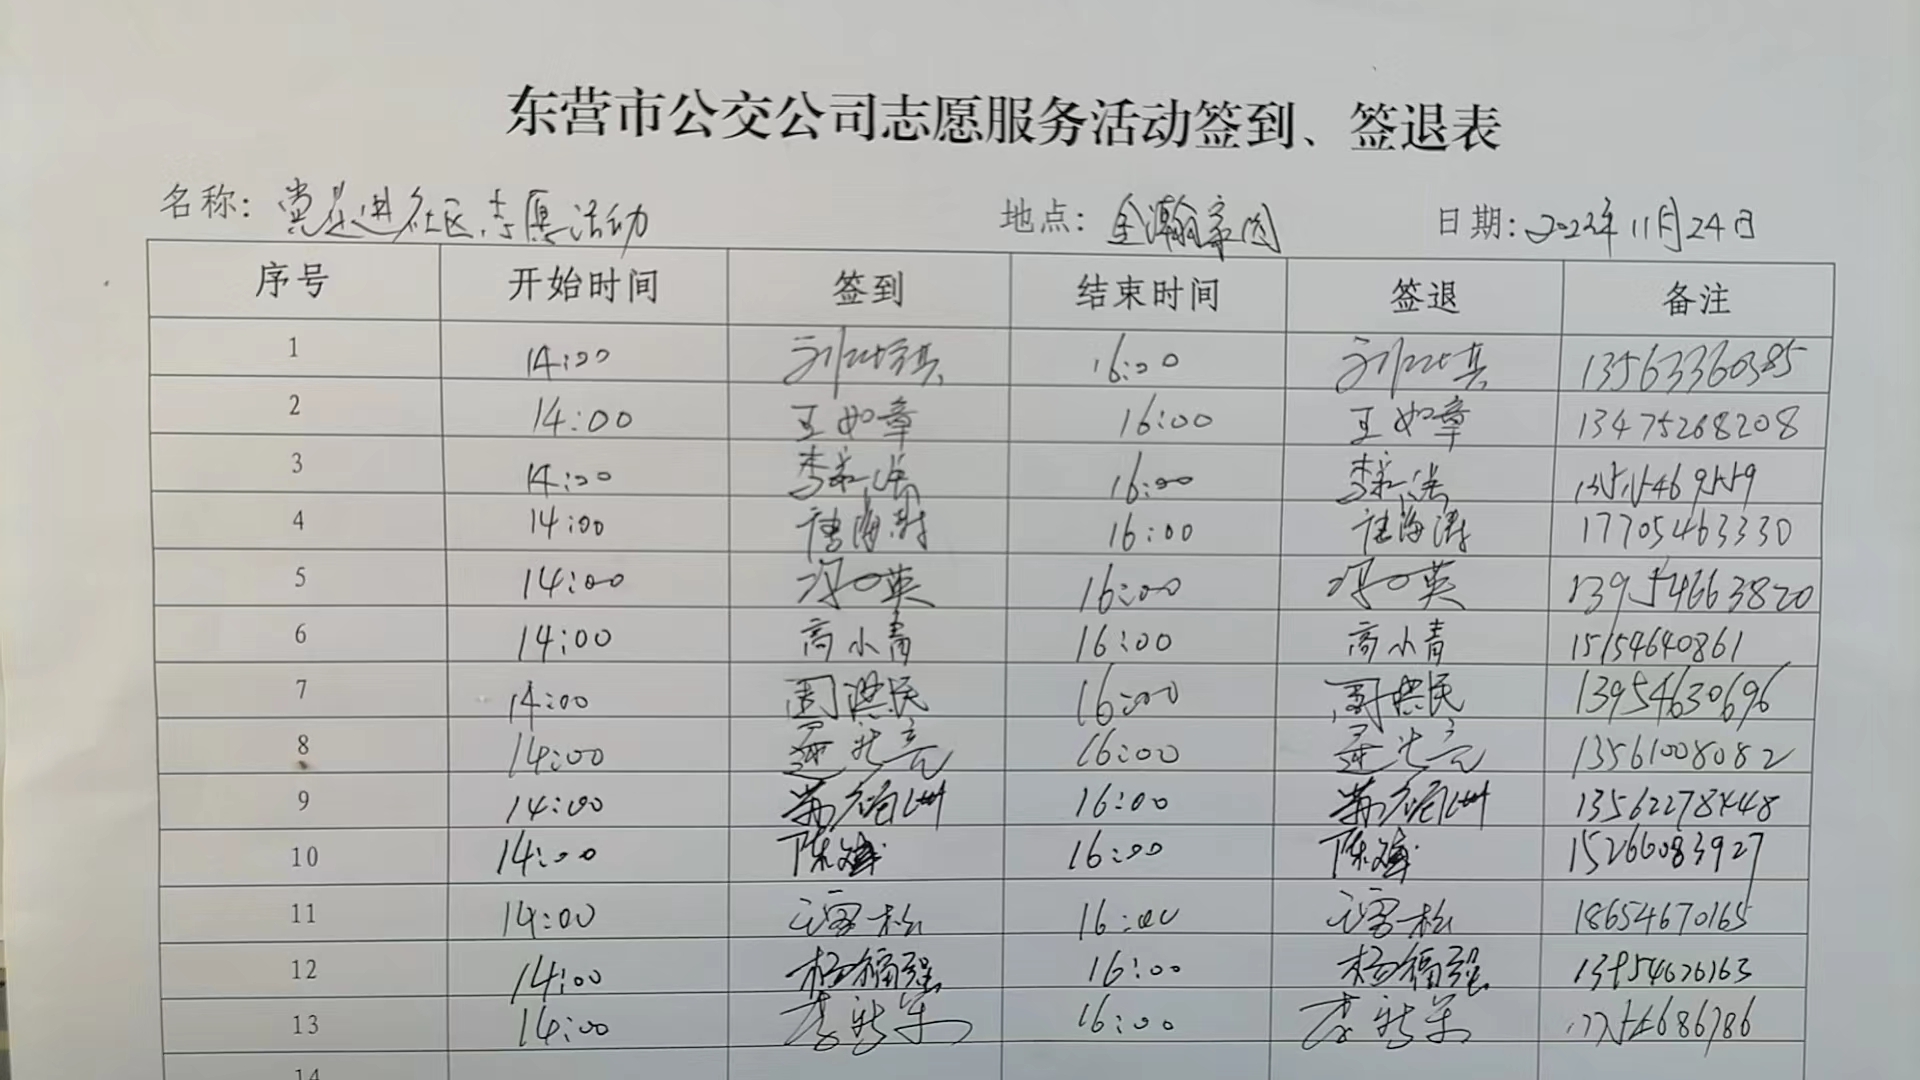 东营市公交公司志愿服务活动签到、签退表
名称：党员进社区志愿活动 地点：金瀚家园 日期：2022年11月24日
序号 开始时间 签到 结束时间 签退 备注
1 14:00 16:00 13563360385
2 14:00 王如章 16:00 王如章 13475268208
3 14:00 16:00
4 14:00 16:00 17705463330
5 14:00 16:00 13954663820
6 14:00 高小青 16:00 高小青 15154640861
7 14:00 周洪民 16:00 周洪民 13954630696
8 14:00 16:00 13561008082
9 14:00 16:00
10 14:00 16:00 15266083927
11 14:00 16:00 18654670165
12 14:00 杨福强 16:00 杨福强 13954626163
13 14:00 李新军 16:00 李新军
14